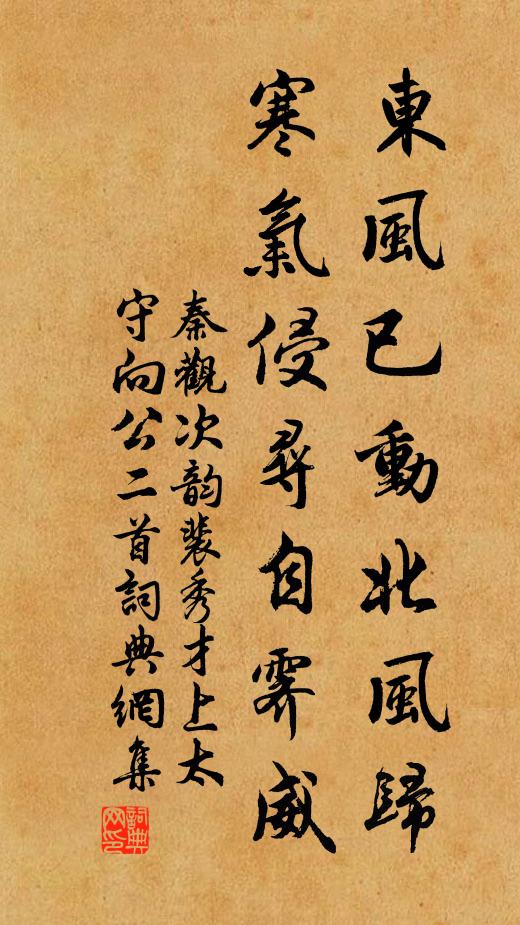 東風已動北風歸
寒氣侵尋自霽威
秦觀次韵裴秀才上太
守向公二首詞典網集
詞典網印